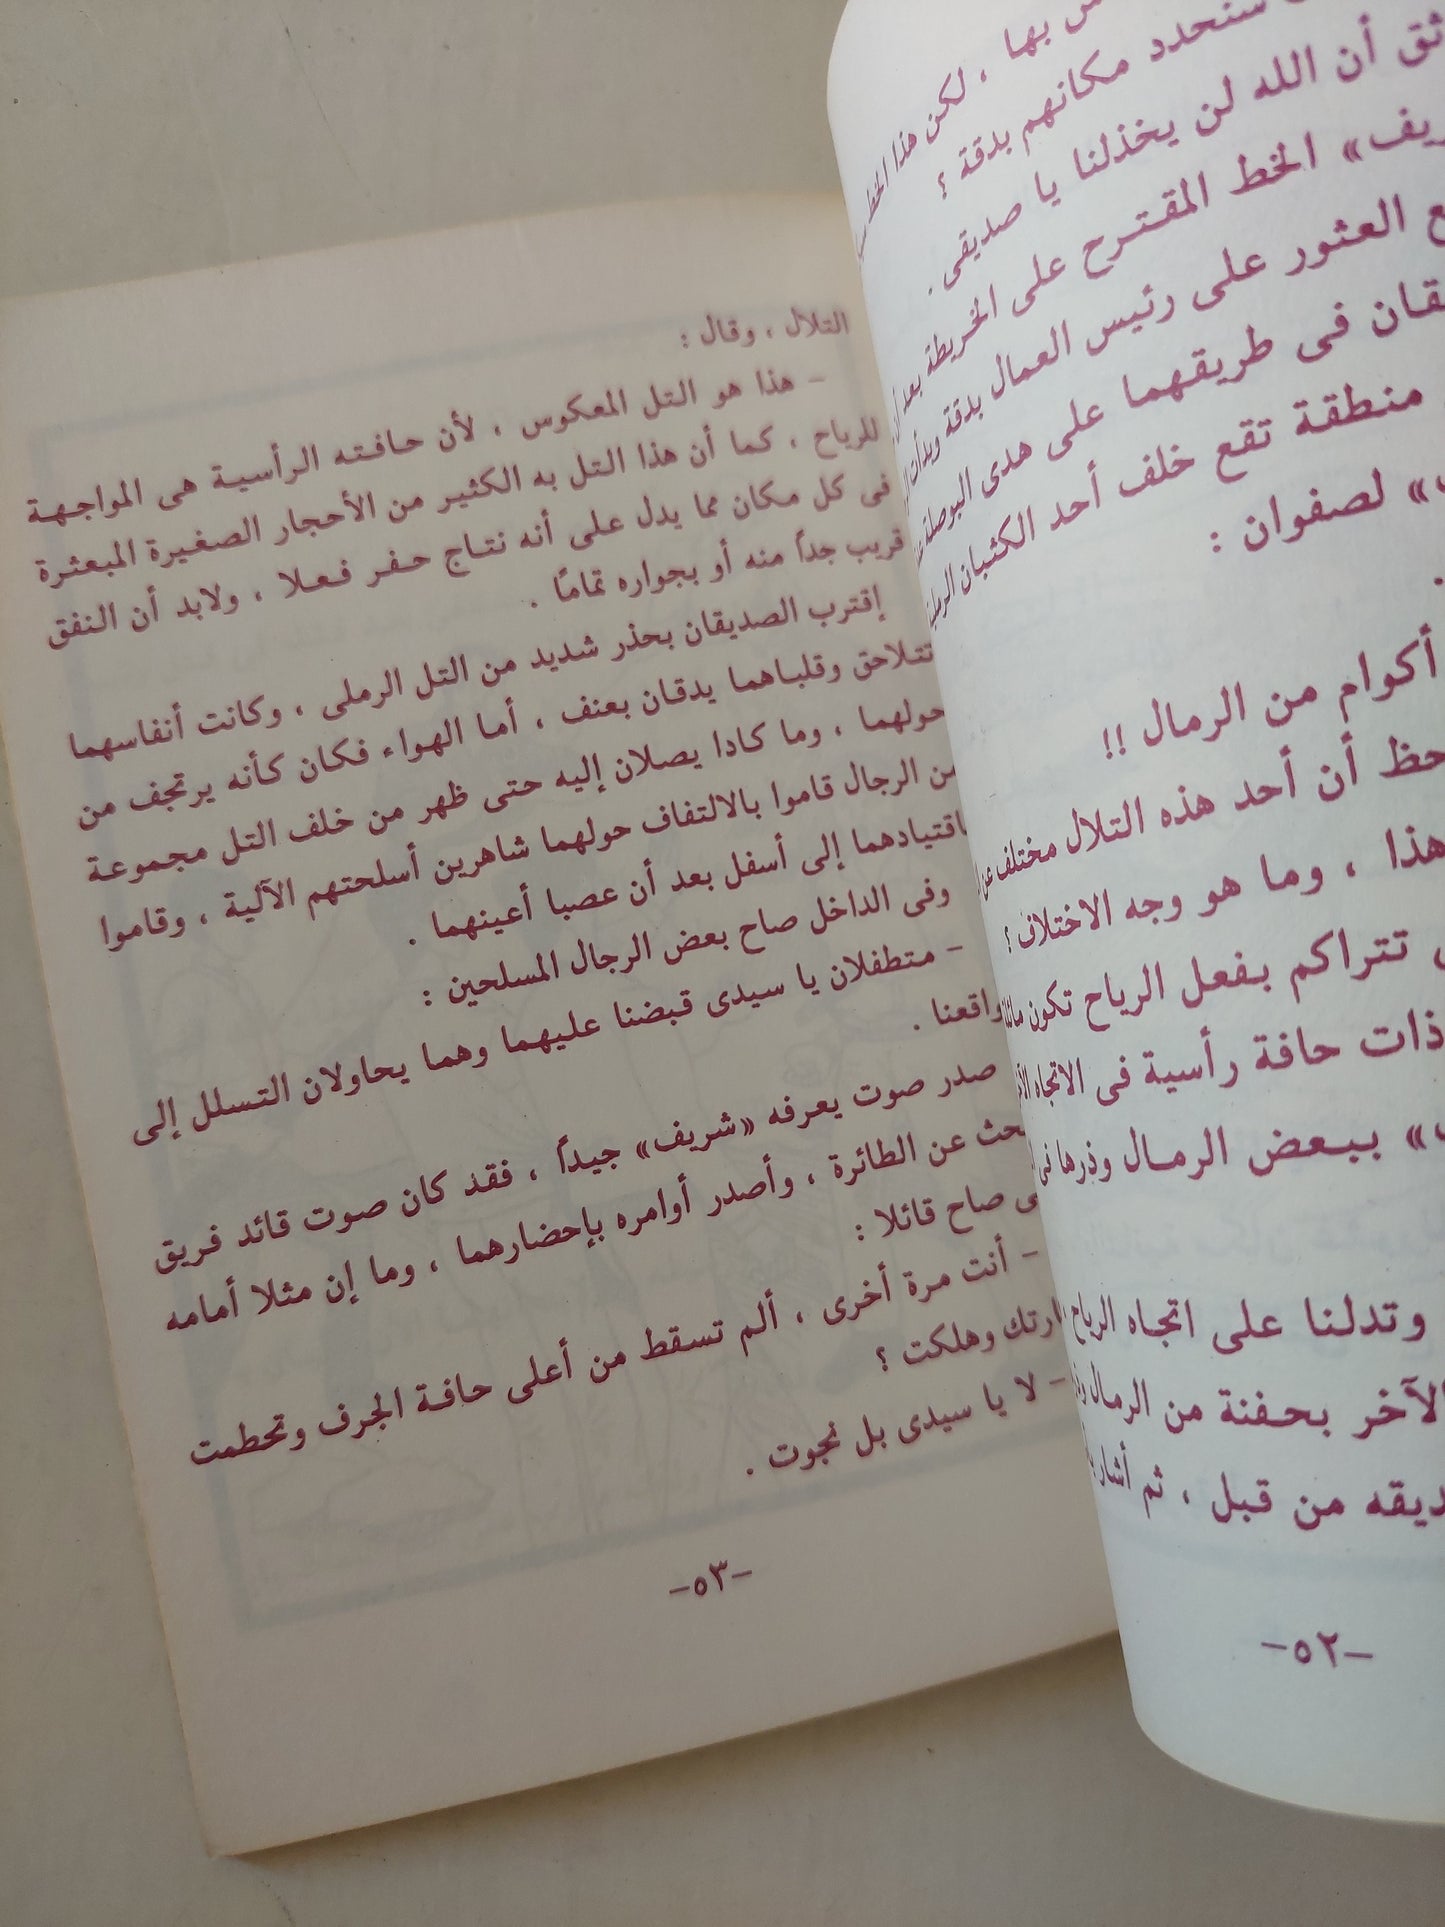 س بها ، لكن هذا الخط
سنحدد مكانهم بدقة ؟
ثق أن الله لن يخذلنا يا صديقى .
ريف» الخط المقترح على الخريطة بعد أن
ع العثور على رئيس العمال بدقة وبدأن
قان فى طريقهما على هدى البوصلة
منطقة تقع خلف أحد الكثبان الرملية
» لصفوان :
أكوام من الرمال !!
حظ أن أحد هذه التلال مختلف عن
هذا ، وما هو وجه الاختلاف ؟
تتراكم بفعل الرياح تكون مائلة
ذات حافة رأسية فى الاتجاه
» ببعض الرمال وذرها فى
وتدلنا على اتجاه الرياح
الآخر بحفنة من الرمال
ديقه من قبل ، ثم أشار
-٥٢-
التلال ، وقال :
- هذا هو التل المعكوس ، لأن حافته الرأسية هى المواجهة
للرياح ، كما أن هذا التل به الكثير من الأحجار الصغيرة المبعثرة
فى كل مكان مما يدل على أنه نتاج حفر فعلا ، ولابد أن النفق
قريب جداً منه أو بجواره تمامًا .
إقترب الصديقان بحذر شديد من التل الرملى ، وكانت أنفاسهما
تتلاحق وقلباهما يدقان بعنف ، أما الهواء فكان كأنه يرتجف من
حولهما ، وما كادا يصلان إليه حتى ظهر من خلف التل مجموعة
من الرجال قاموا بالالتفاف حولهما شاهرين أسلحتهم الآلية ، وقاموا
باقتيادهما إلى أسفل بعد أن عصبا أعينهما .
وفى الداخل صاح بعض الرجال المسلحين :
- متطفلان يا سيدى قبضنا عليهما وهما يحاولان التسلل إلى
واقعنا .
صدر صوت يعرفه «شريف» جيداً ، فقد كان صوت قائد فريق
حث عن الطائرة ، وأصدر أوامره بإحضارهما ، وما إن مثلا أمامه
ى صاح قائلا :
- أنت مرة أخرى ، ألم تسقط من أعلى حافة الجرف وتحطمت
ارتك وهلكت ؟
- لا يا سيدى بل نجوت .
-٥٣-